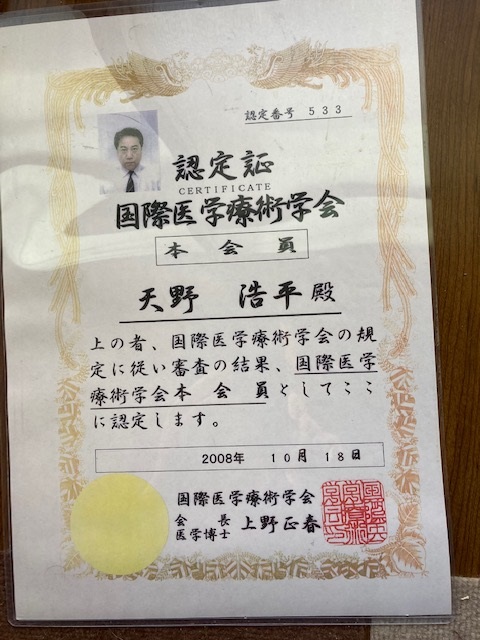 認定番号 533
認定証
CERTIFICATE
国際医学療術学会
本会員
天野 浩平 殿
上の者、国際医学療術学会の規
定に従い審査の結果、国際医学
療術学会本 会 員としてここ
に認定します。
2008年 10月 18日
国際医学療術学会
会 長
医学博士 上野正春